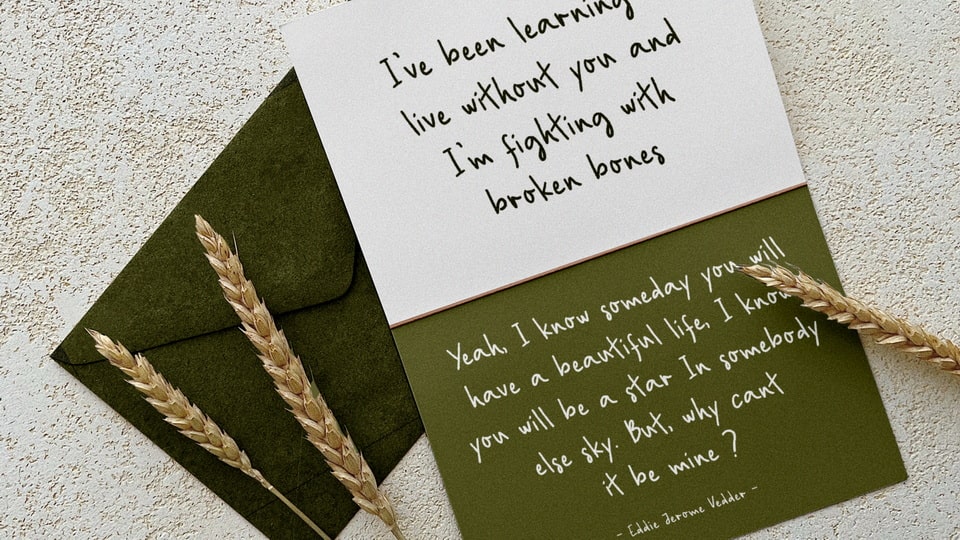 I've been learning
live without you and
I'm fighting with
broken bones
Yeah, I know someday you will
have a beautiful life, I know
you will be a star In somebody
else sky. But, why cant
it be mine?
- Eddie Jerome Vedder -